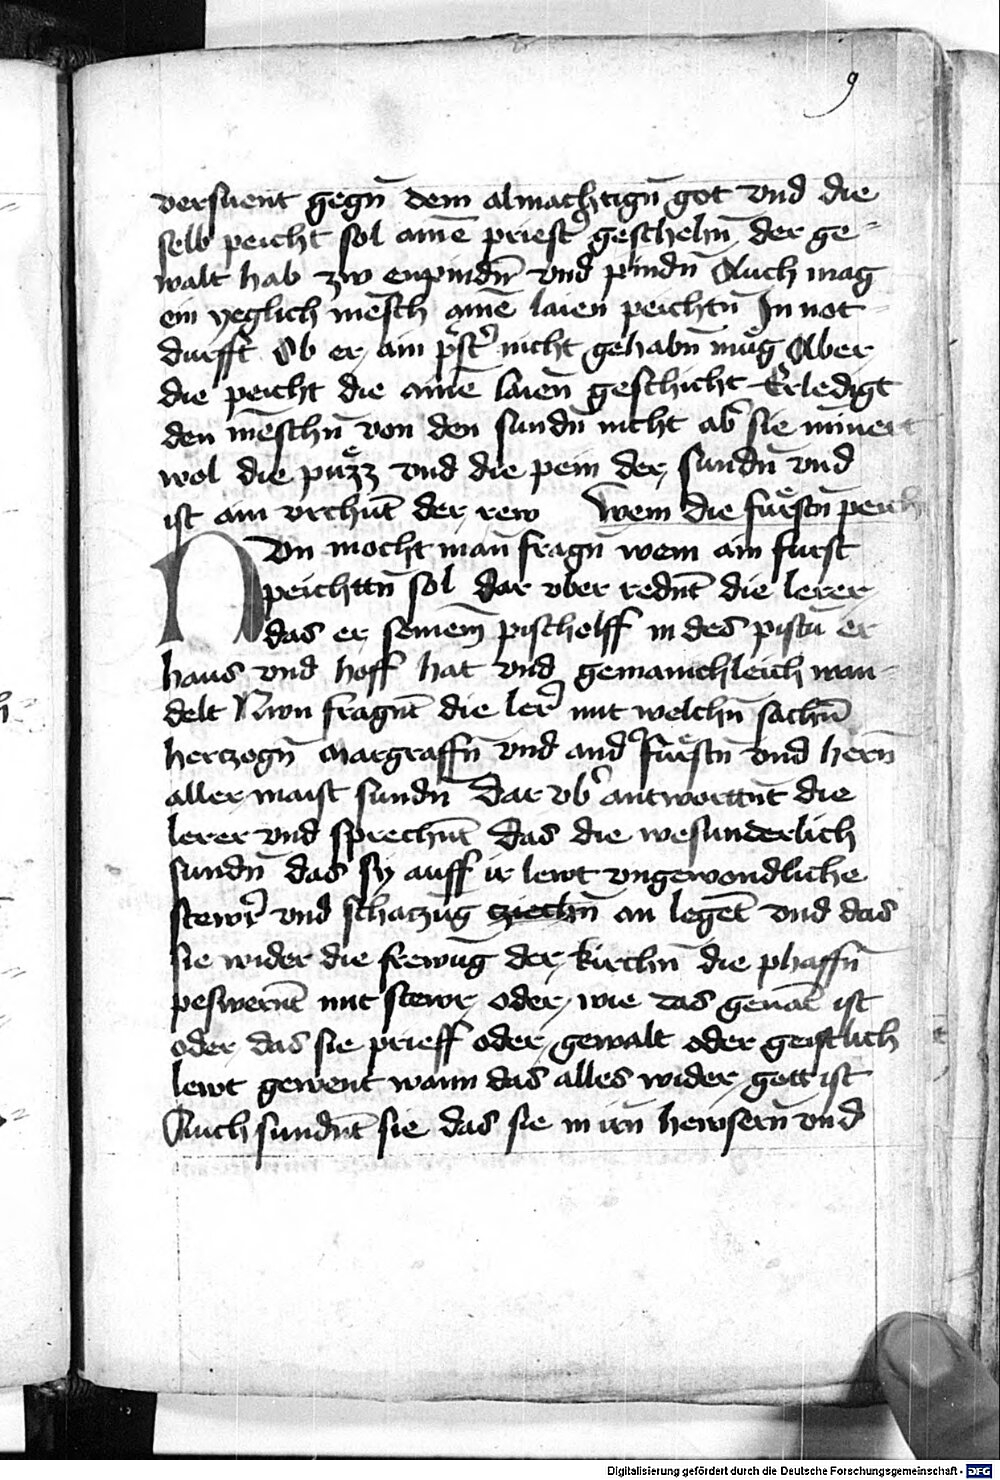 9
versuent gegn̄ dem almachtign̄ got vnd die
selb peicht sol aine͂ priestꝰ geschehn̄ der ge=
walt hab zw enpindn̄ vnd pindn̄ Auch mag
ein yeglich me͂sch aine͂ laien peichtn̄ In not=
durfft Ob er ain pͥstꝰ nicht gehabn̄ muͤg Aber
die peicht die aine͂ laien̄ geschicht Erledigt
den me͂schn̄ von den sundn̄ nicht abꝰ sie mīnert
wol die puͤzz vnd die pein der sundn̄ vnd
ist ain vrchūt der rew Wem die fuͤrstn̄ peich
Nvn mocht man̄ fragn̄ wem ain furst
peichttn̄ sol dar vber rednt̄ die lerer
das er seinem̄ pischolff in des pistū er
haus vnd hoff hat vnd gemainchleich wan=
delt Nwn fragnt̄ die lerꝰ mit welchn̄ sachn̄
hertzogn̄ Margraffn̄ vnd andꝰ fuͤrstn̄ vnd hern̄
aller maist sundn̄ Dar vbꝰ antworttnt̄ die
lerer vnd sprechnt̄ Das die wesunderlich
sundn̄ das sy auff ir lewt vngewondliche
stewrꝰ vnd schatzūg ziechn̄ an legēt vnd das
sie wider die frewūg der kirchn̄ die phaffn̄
peswernt̄ mit stewr oder wie das genāt ist
oder das sie prieff oder gewalt oder geistlich
lewt gewent wann das alles wider gott ist
Auch sundnt̄ sie das sie in irn̄ hewsern̄ vnd
Digitalisierung gefördert durch die Deutsche Forschungsgemeinschaft - DFG